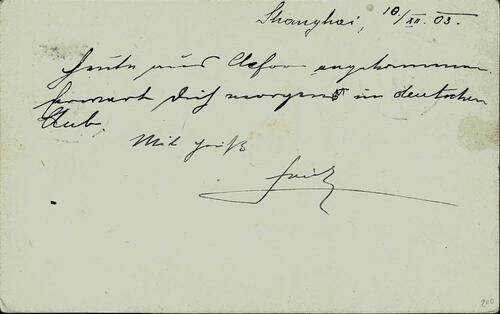 Shanghai, 10./XII. 03.
Heute aus Chefoo angekommen.
Erwarte Dich morgen in deutschen
Club.
Mit Gruß
Fritz